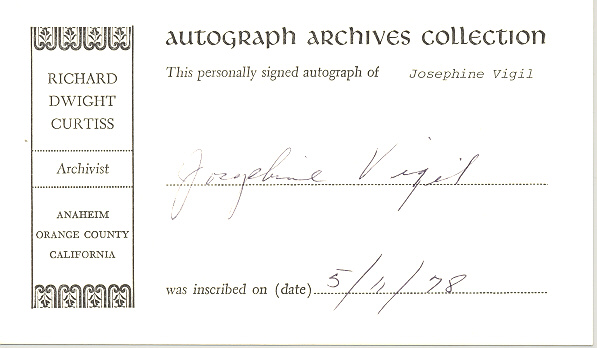 AUTOGRAPH ARCHIVES COLLECTION
This personally signed autograph of Josephine Vigil
Josephine Vigil
was inscribed on (date) 5/11/78
RICHARD
DWIGHT
CURTISS
Archivist
ANAHEIM
ORANGE COUNTY
CALIFORNIA